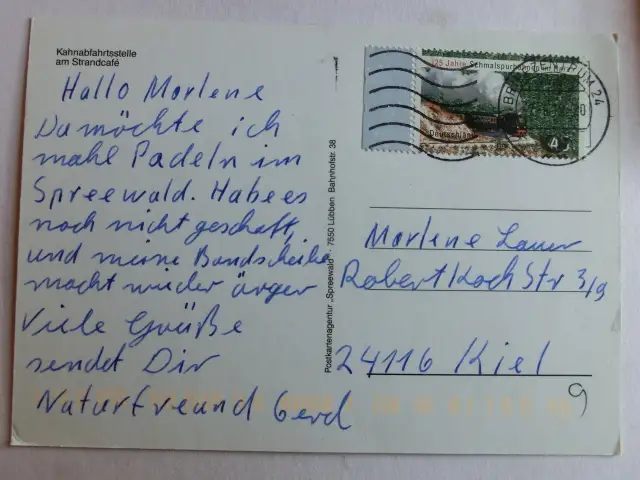 Kahnabfahrtsstelle
am Strandcafé
Hallo Marlene
Da möchte ich
mahl Padeln im
Spreewald. Habe es
noch nicht geschafft,
und meine Bandscheibe
macht wieder ärger
Viele Grüße
sendet Dir
Naturfreund Gerd
Postkartenagentur „Spreewald" · 7550 Lübben Bahnhofstr. 38
125 Jahre Schmalspurbahnen im Harz
Deutschland
ZENTRUM 24
Marlene Lauer
Robert Koch Str 3/9
24116 Kiel
9